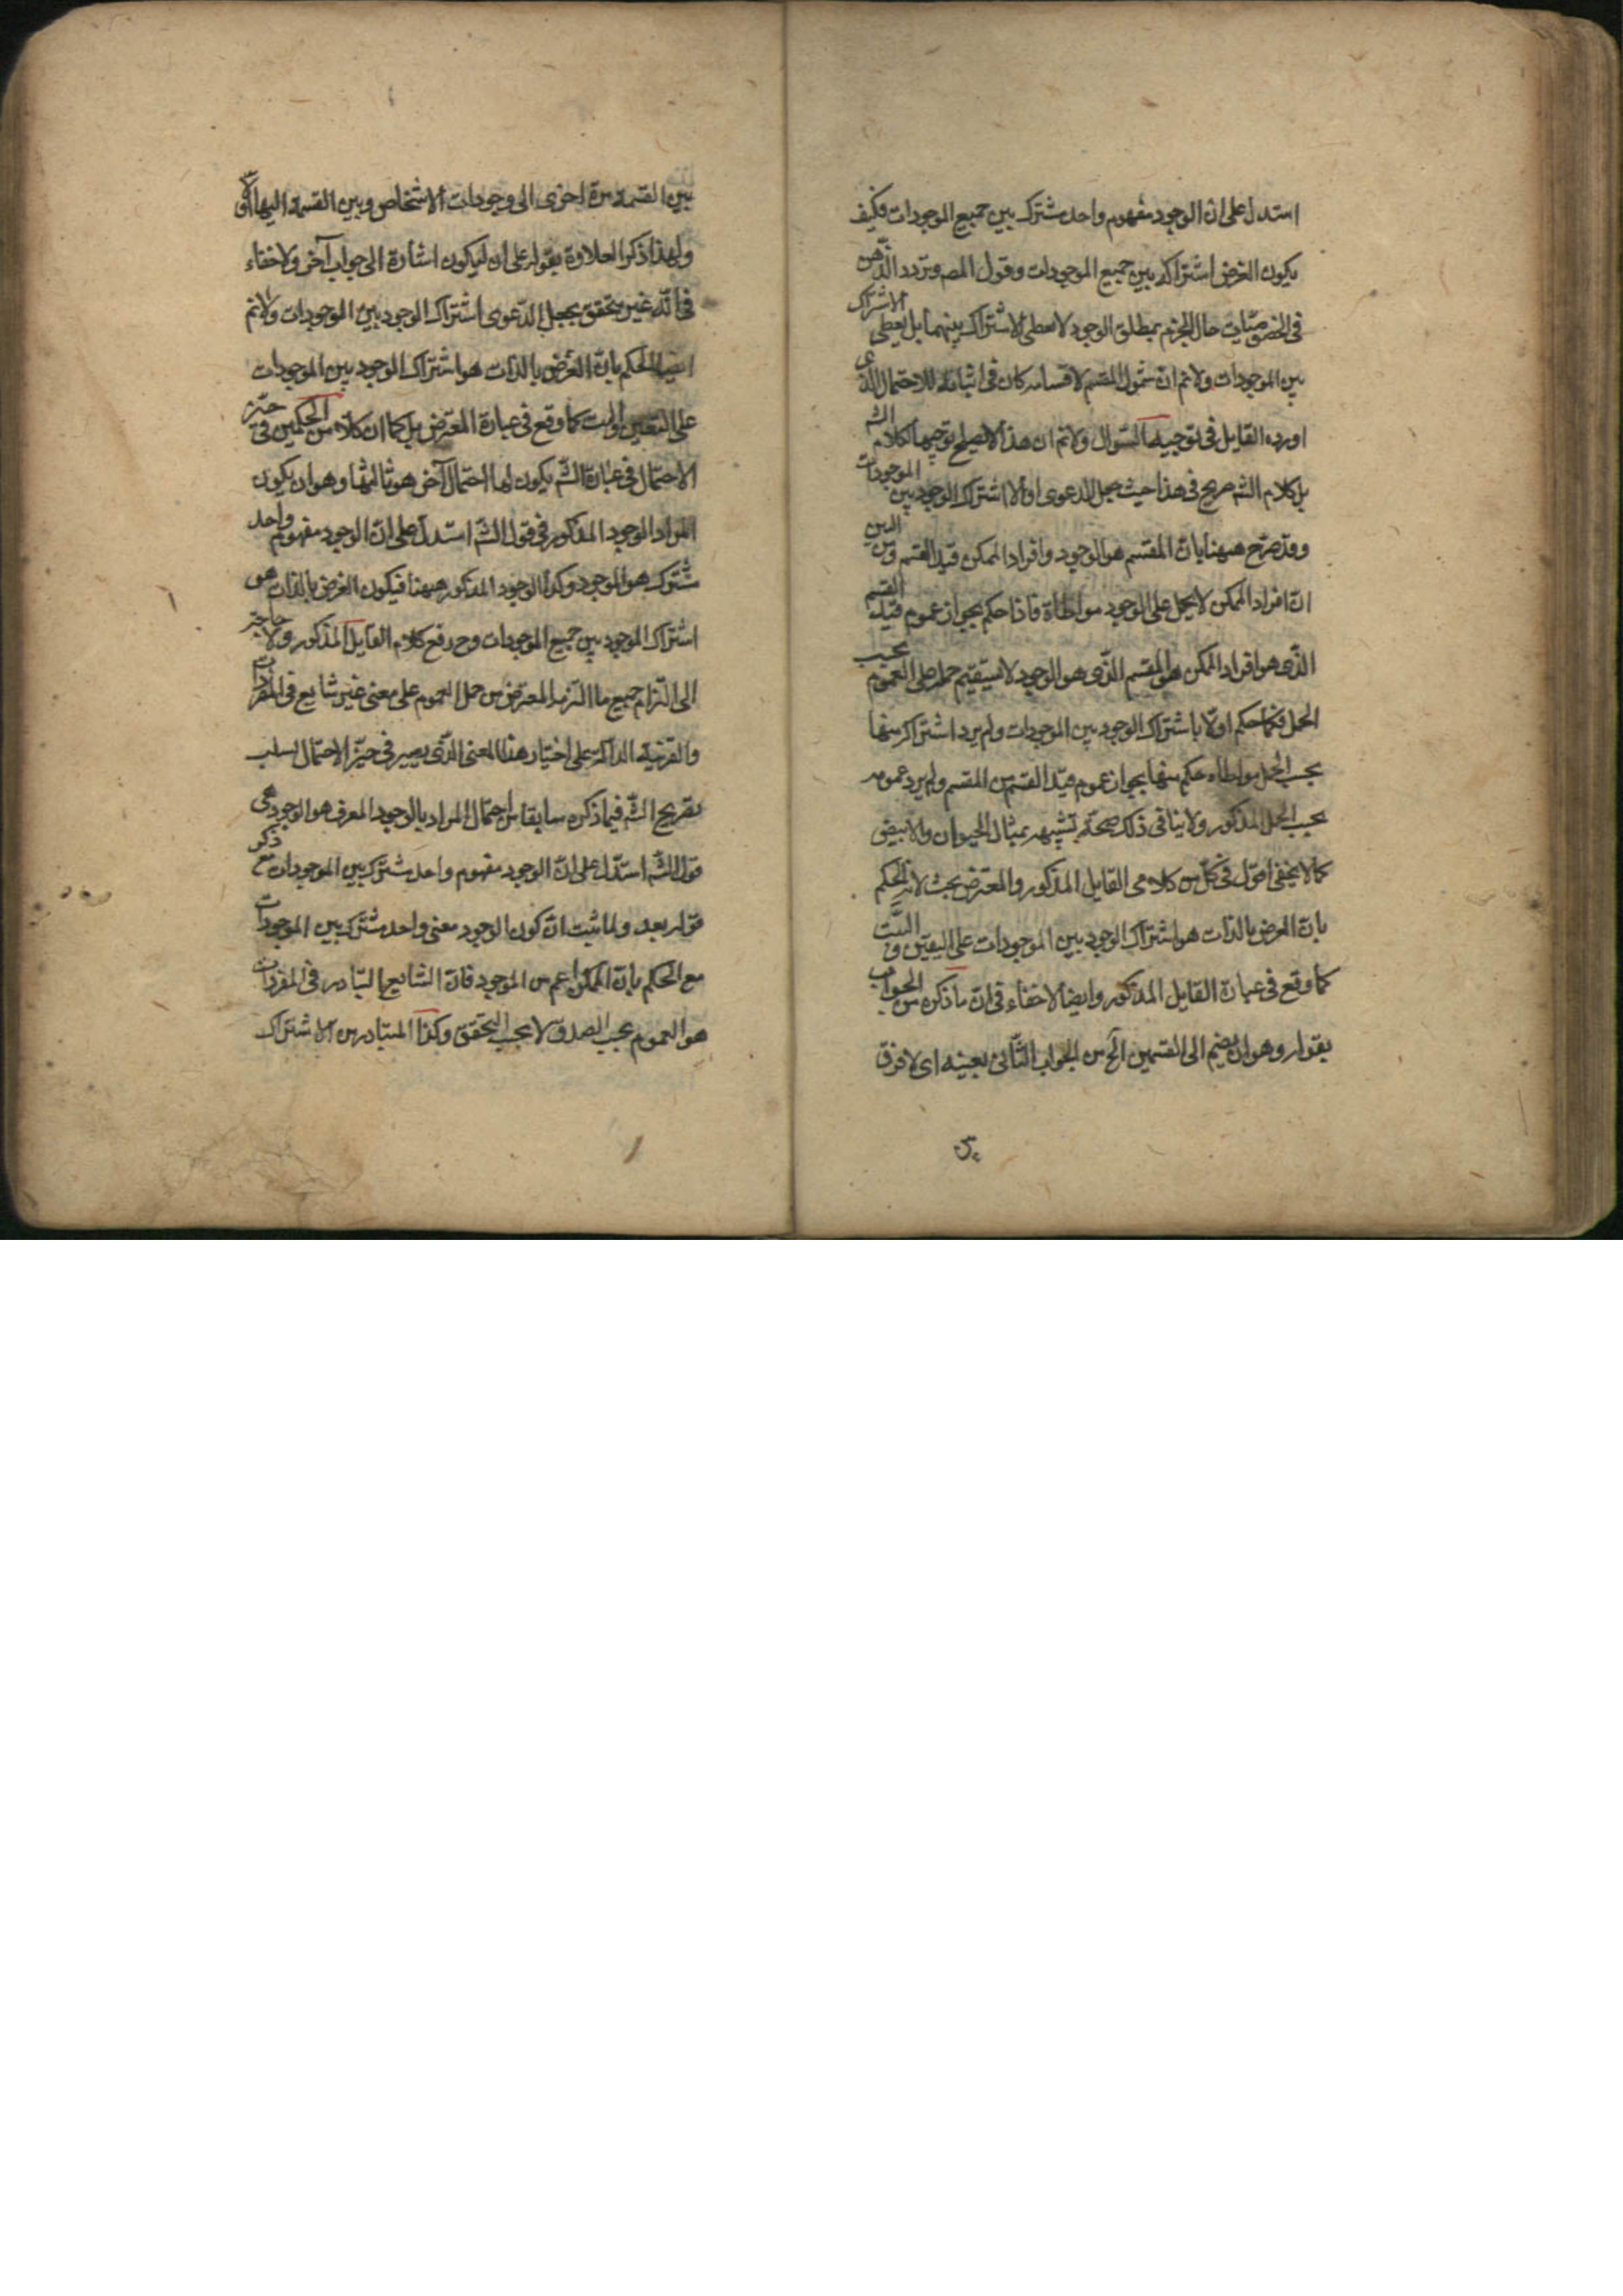 استدل على ان الوجود مفهوم واحد مشترك بين جميع الموجودات فكيف
يكون الغرض اشتراكه بين جميع الموجودات وقول المصـ وتردد الذهن
فى الخصوصيّات حال الجزم بمطلق الوجود لا يعطى الاشتراك بينهما بل يعطى الاشتراك
بين الموجودات ولانم ان شمول المقسم لاقسامه كان فى اثباته للاحتمال الذى
اورده القايل فى توجيه السّوال ولانم ان هذا لا يصلح توجيها لكلام الشـ
بل كلام الشـ صريح فى هذا حيث جعل الدعوى اولا اشتراك الوجود بين الموجودات
وقد صرّح ههنا بانّ المقسم هو الوجود وافراد الممكن قيد القسم ومن البين
انّ افراد الممكن لا يحمل على الوجود مواطاة فاذا حكم بجواز عموم قيد القسم
الذّى هو افراد الممكن المقسم الذّى هو الوجود لا يستقيم حمله على العموم بحسب
الحمل فكما حكم اولا باشتراك الوجود بين الموجودات ولم يرد اشتراكه منها
بحسب الحمل مواطاه حكم منها بجواز عموم قيد القسم من المقسم ولم يرد عمومه
بحسب الحمل المذكور ولا ينافى ذلك صحة تشبيهه بمثال الحيوان والابيض
كما لا يخفى اقول فى كلّ من كلامى القايل المذكور والمعترض بحث لانه الحكم
بانّ الغرض بالذّات هو اشتراك الوجود بين الموجودات على اليقين و البتّ
كما وقع فى عبارة القايل المذكور وايضا لا خفاء فى انّ ما ذكره من الجواب
بقوله وهو ان يضم الى القسمين الخ من الجواب الثّانى بعينه اى لا فرق
بين القسمة مرة اخرى الى وجودات الاشخاص وبين القسمة اليها اوّلا
ولهذا ذكر العلاوة بقوله على ان ليكون اشارة الى جواب آخر ولا خفاء
فى انّه غير متحقق بجعل الدّعوى اشتراك الوجود بين الموجودات ولانم
ايضا الحكم بانّ الغرض بالذّات هو اشتراك الوجود بين الموجودات
على اليقين والبت كما وقع فى عبارة المعترض بل كما ان كلا من الحكمين فى حيّز
الاحتمال فى عبارة الشّـ يكون لها احتمال آخر هو ثالثها وهو ان يكون
المراد الوجود المذكور فى قول الشّـ استدلّ على انّ الوجود مفهوم واحد
مشترك هو الموجود وكذا الوجود المذكور ههنا فيكون الغرض بالذّات هو
اشتراك الموجود بين جميع الموجودات وح رفع كلام القايل المذكور ولا حاجة
الى التزام جميع ما التزمه المعترض من حمل العموم على معنى غير شايع فى المفردات
والقرينة الدالّة على اختيار هذا المعنى الذّى يصير فى حيّز الاحتمال بسلب
تصريح الشّـ فيما ذكره سابقا من احتمال المراد بالوجود المعرف هو الموجود هى
قول الشّـ استدّل على انّ الوجود مفهوم واحد مشترك بين الموجودات مع ذكر
قوله بعد ولما ثبت انّ كون الوجود معنى واحد مشترك بين الموجودات
مع الحكم بانّ الممكن اعم من الموجود فانّ الشّايع المتبادر فى المفردات
هو العموم بحسب الصدق لا بحسب التحقق وكذا المتبادر من الاشتراك